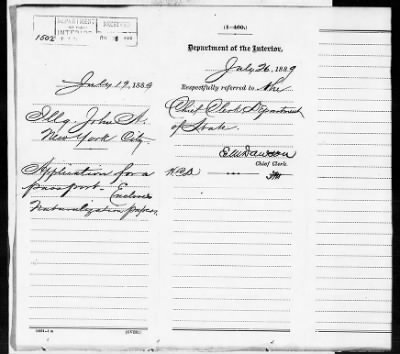 DEPARTMENT
INTERIOR
RECEIVED
1502
July 19, 1889
Illg, John A.
New York City.
Application for a
passport. Encloses
Naturalization papers.
(1-460.)
Department of the Interior,
July 26, 1889
Respectfully referred to the
Chief Clerk Department
of State.
E.M. Dawson
Chief Clerk.
(OVER.)